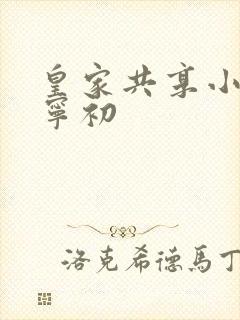 皇家共享小
寧初
洛克希德馬丁